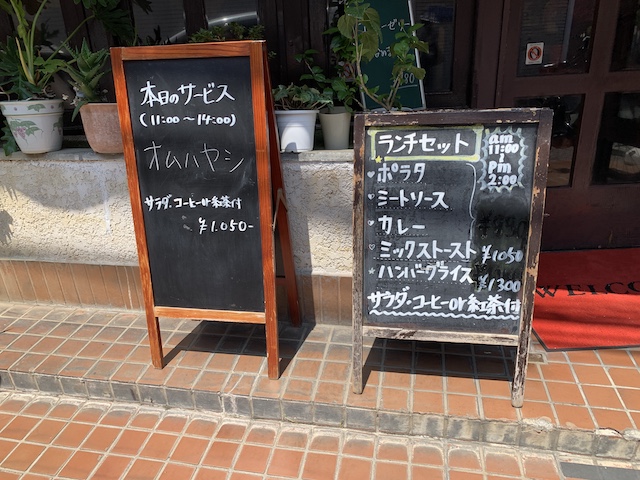 本日のサービス
(11:00〜14:00)
オムハヤシ
サラダ・コーヒーor紅茶付
¥1.050-
ランチセット
am
11:00
〜
pm
2:00
★ポラタ
♡ミートソース
♡カレー
♡ミックストースト ¥1050
★ハンバーグライス ¥1300
サラダ・コーヒーor紅茶付
WELCO